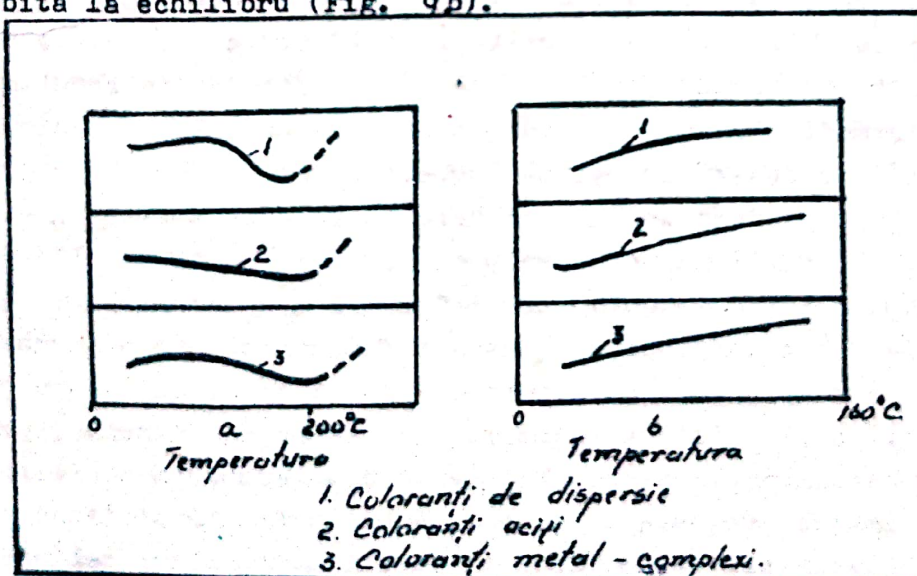 bita la echilibru (Fig. 9b).
1
2
3
0 a 200°C
Temperatura
1
2
3
0 b 160°C
Temperatura
1. Coloranți de dispersie
2. Coloranți acizi
3. Coloranți metal - complexi.